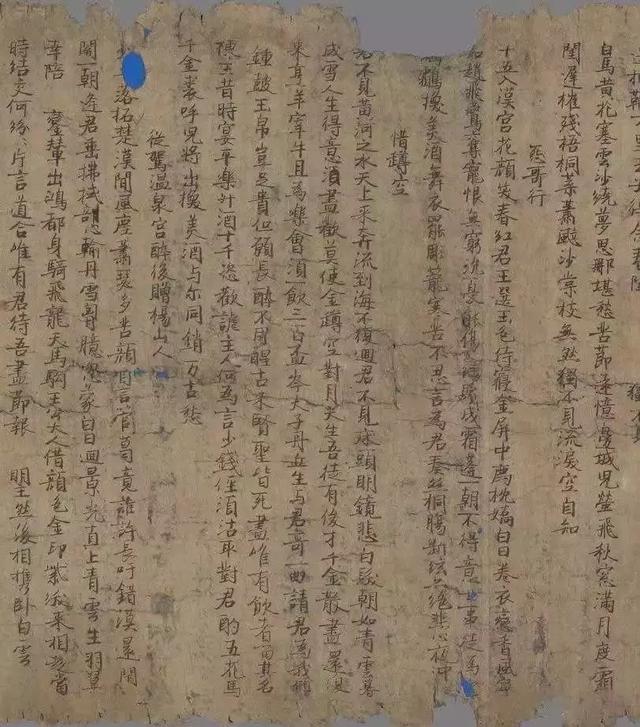 白馬黃花塞雲沙繞夢思那堪愁苦節遠憶邊城兒螢飛秋窓滿月度霜
閨遲摧殘梧桐葉蕭颯沙棠枝無然獨不見流淚空自知
怨哥行
十五入漢宮花顏笑春紅君王選玉色侍寢金屏中薦枕嬌白日卷衣戀春風
知趙飛鷰奪寵恨無窮沉憂能傷鬢成霜蓬一朝不得意世事徒為
鸘換美酒舞衣罷雕籠寒苦不忍言為君奏絲桐腸斷絃亦絕悲心夜忡
惜罇空
君不見黃河之水天上來奔流到海不復迴君不見床頭明鏡悲白髮朝如青雲暮
成雪人生得意須盡歡莫使金罇空對月天生吾徒有俊才千金散盡還復
來烹羊宰牛且為樂會須一飲三百盃岑夫子丹丘生与君哥一曲請君為我傾
鍾鼓玉帛豈足貴但願長醉不用醒古來賢聖皆死盡唯有飲者留其名
陳王昔時宴平樂斗酒十千恣歡謔主人何為言少錢徑須沽取對君酌五花馬
千金裘呼兒將出換美酒与尔同銷万古愁
從駕溫泉宮醉後贈楊山人
落拓楚漢間風塵蕭瑟多苦顏自言管葛竟誰許長吁錯漠還閉
關一朝逢君垂拂拭剖心輸丹雪胸臆忽蒙白日迴景光直上青雲生羽翼
幸陪 鸞輦出鴻都身騎飛龍天馬駒王公大人借顏色金印紫綬來相趨當
時結交何紛紛片言道合唯有君待吾盡節報 明主然後相携臥白雲